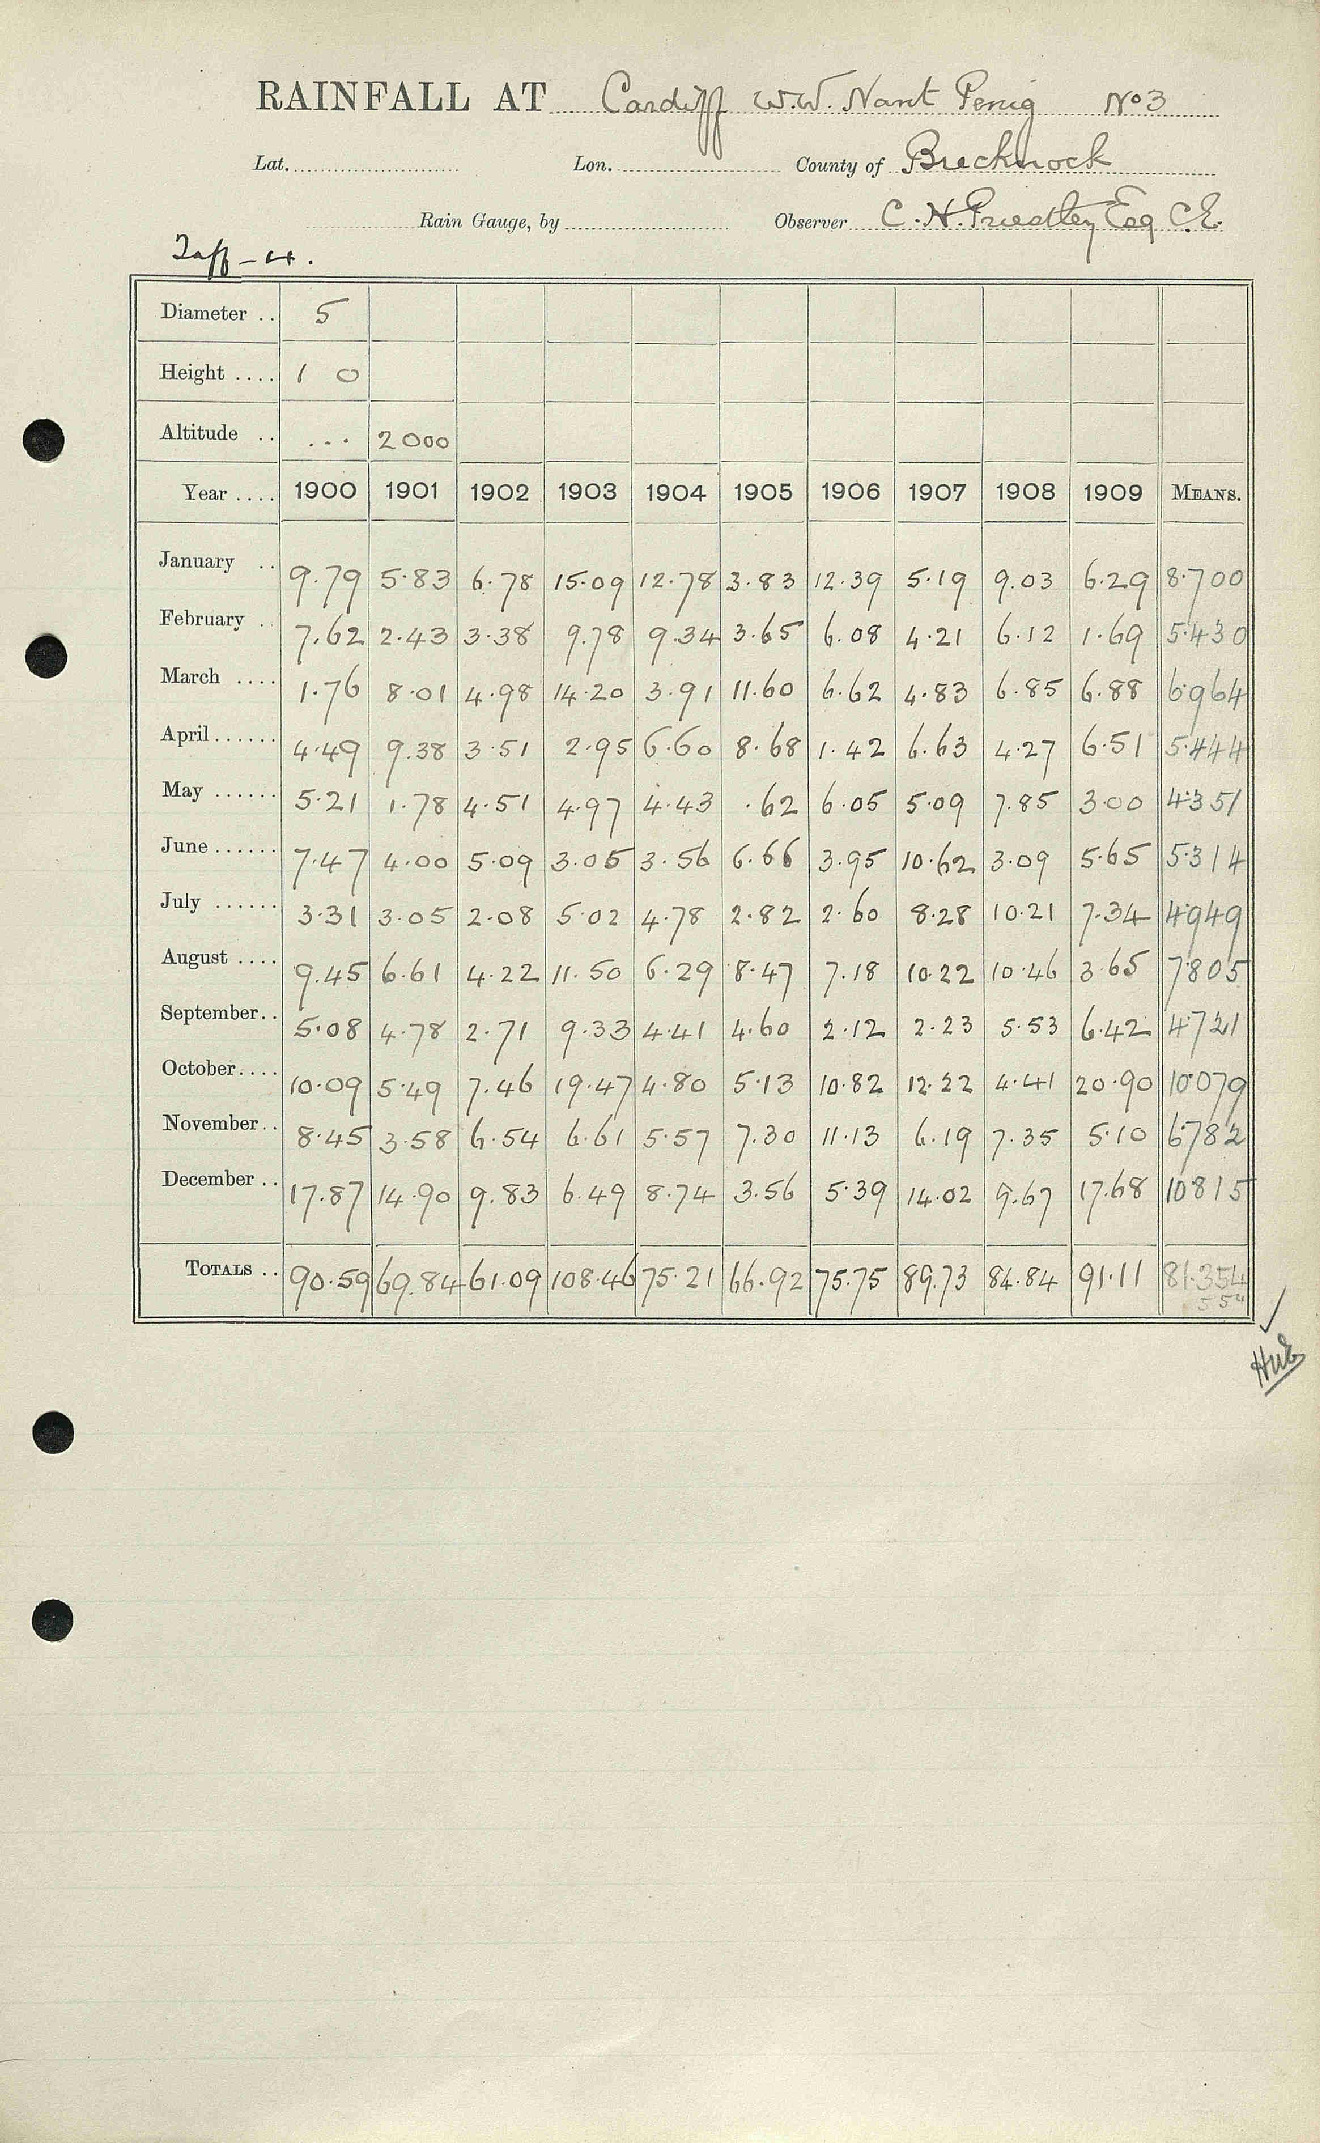 RAINFALL AT Cardiff W.W. Nant Penig No 3
Lat. Lon. County of Brecknock
Rain Gauge, by Observer C. H. Priestley Esq C.E.
Taff - 4.
Diameter .. 5
Height .... 1 0
Altitude .. ... 2000
Year .... 1900 1901 1902 1903 1904 1905 1906 1907 1908 1909 MEANS.
January .. 9.79 5.83 6.78 15.09 12.78 3.83 12.39 5.19 9.03 6.29 8.700
February .. 7.62 2.43 3.38 9.78 9.34 3.65 6.08 4.21 6.12 1.69 5.430
March .... 1.76 8.01 4.98 14.20 3.91 11.60 6.62 4.83 6.85 6.88 6.964
April...... 4.49 9.38 3.51 2.95 6.60 8.68 1.42 6.63 4.27 6.51 5.444
May ...... 5.21 1.78 4.51 4.97 4.43 .62 6.05 5.09 7.85 3.00 4.351
June ...... 7.47 4.00 5.09 3.05 3.56 6.66 3.95 10.62 3.09 5.65 5.314
July ...... 3.31 3.05 2.08 5.02 4.78 2.82 2.60 8.28 10.21 7.34 4.949
August .... 9.45 6.61 4.22 11.50 6.29 8.47 7.18 10.22 10.46 3.65 7.805
September.. 5.08 4.78 2.71 9.33 4.41 4.60 2.12 2.23 5.53 6.42 4.721
October.... 10.09 5.49 7.46 19.47 4.80 5.13 10.82 12.22 4.41 20.90 10.079
November.. 8.45 3.58 6.54 6.61 5.57 7.30 11.13 6.19 7.35 5.10 6.782
December .. 17.87 14.90 9.83 6.49 8.74 3.56 5.39 14.02 9.67 17.68 10.815
TOTALS .. 90.59 69.84 61.09 108.46 75.21 66.92 75.75 89.73 84.84 91.11 81.354